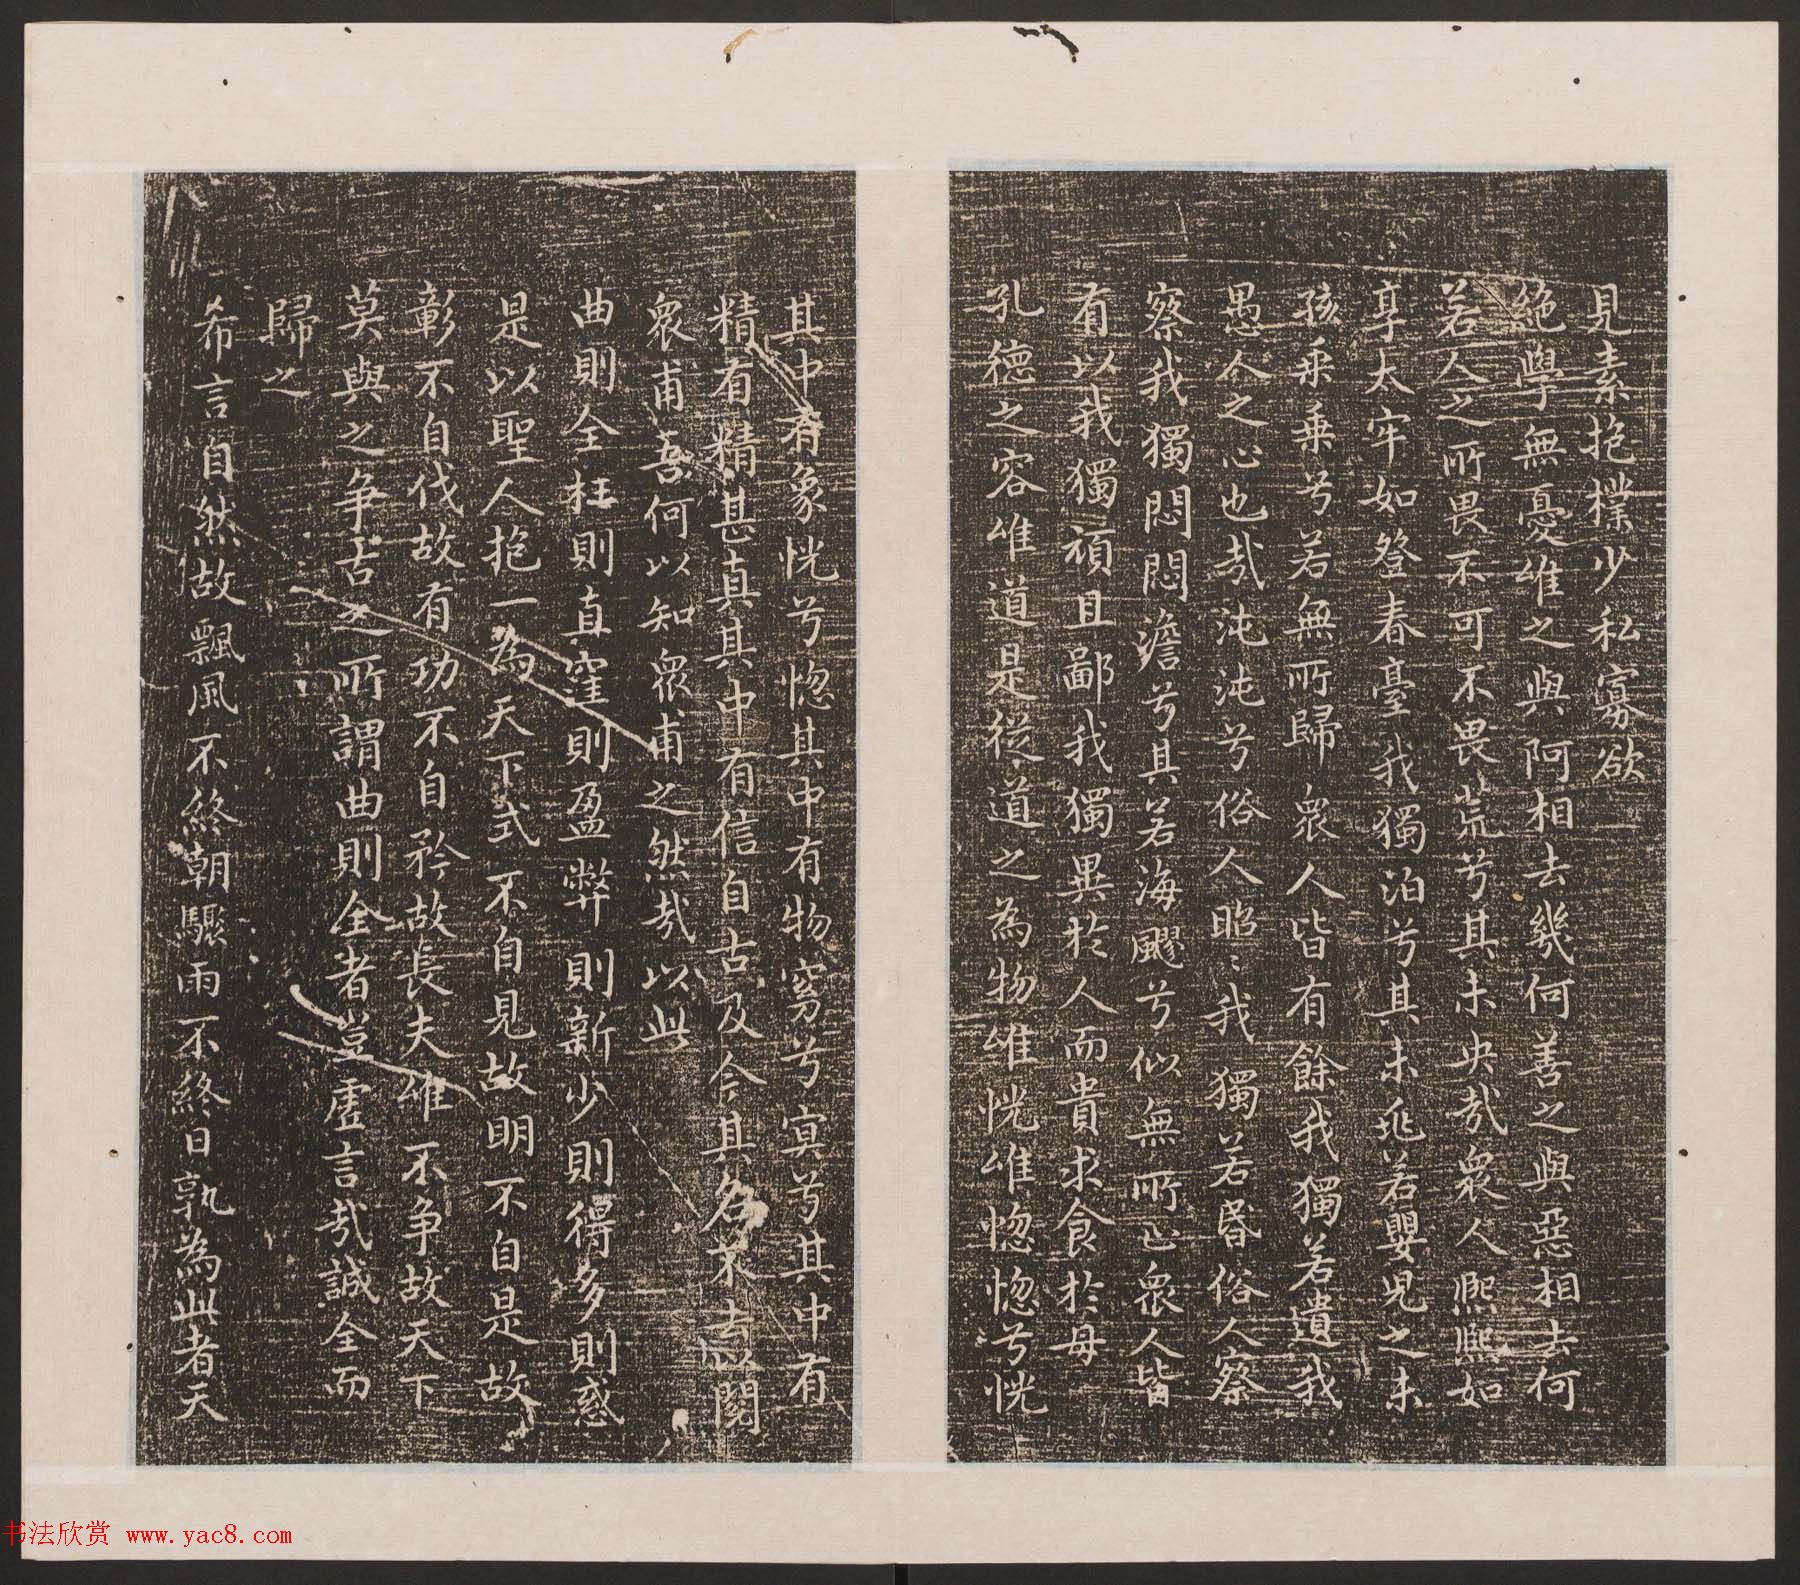 見素抱樸少私寡欲
絶學無憂唯之與阿相去幾何善之與惡相去何
若人之所畏不可不畏荒兮其未央哉衆人熈熈如
享太牢如登春臺我獨泊兮其未兆若嬰兒之未
孩乗乗兮若無所歸衆人皆有餘我獨若遺我
愚人之心也哉沌沌兮俗人昭〻我獨若昏俗人察
察我獨悶悶澹兮其若海飂兮似無所止衆人皆
有以我獨頑且鄙我獨異於人而貴求食於母
孔德之容唯道是從道之為物唯恍唯惚惚兮恍
其中有象恍兮惚其中有物窈兮冥兮其中有
精有精甚真其中有信自古及今其名不去以閱
衆甫吾何以知衆甫之然哉以此
曲則全枉則直窪則盈弊則新少則得多則惑
是以聖人抱一為天下式不自見故明不自是故
彰不自伐故有功不自矜故長夫唯不争故天下
莫與之争古之所謂曲則全者豈虚言哉誠全而
歸之
希言自然故飄風不終朝驟雨不終日孰為此者天
书法欣赏 www.yac8.com